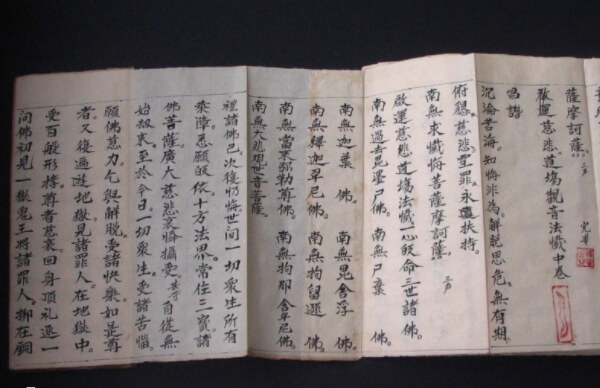 薩摩訶薩。三声
啟運慈悲道場觀音法懺中卷
唱讚
沉淪苦海。知悔非為。解脫思危。無有期。
俯懇。慈悲雪罪。永遠扶持。
南無求懺悔菩薩摩訶薩。三声
啟運慈悲道場法懺一心皈命三世諸佛。
南無過去毘婆尸佛。南無尸棄佛。
南無迦葉佛。南無毘舍浮佛。
南無釋迦牟尼佛。南無拘留孫佛。
南無當來彌勒尊佛。南無拘那含牟尼佛。
南無大悲觀世音菩薩。
禮諸佛已。次復仍悔。世間一切眾生所有
業障。志願皈依。十方法界。常住三寶。諸
佛菩薩。廣大慈悲。哀憐攝受。某等自從無
始劫來。至於今日。一切眾生。受諸苦惱。
願佛慈力。乞與解脫。受諸快樂。如是尊
者。又復過遊地獄。見諸罪人。在地獄中。
受百般形拷。尊者慈哀。回身頂禮。一
問佛。初見一獄。鬼王將諸罪人。挪在銅